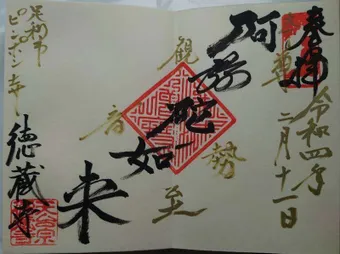 奉拝
令和四年
二月十一日
阿弥陀如来
観音
勢至
足利市
ピンポン寺
徳蔵寺